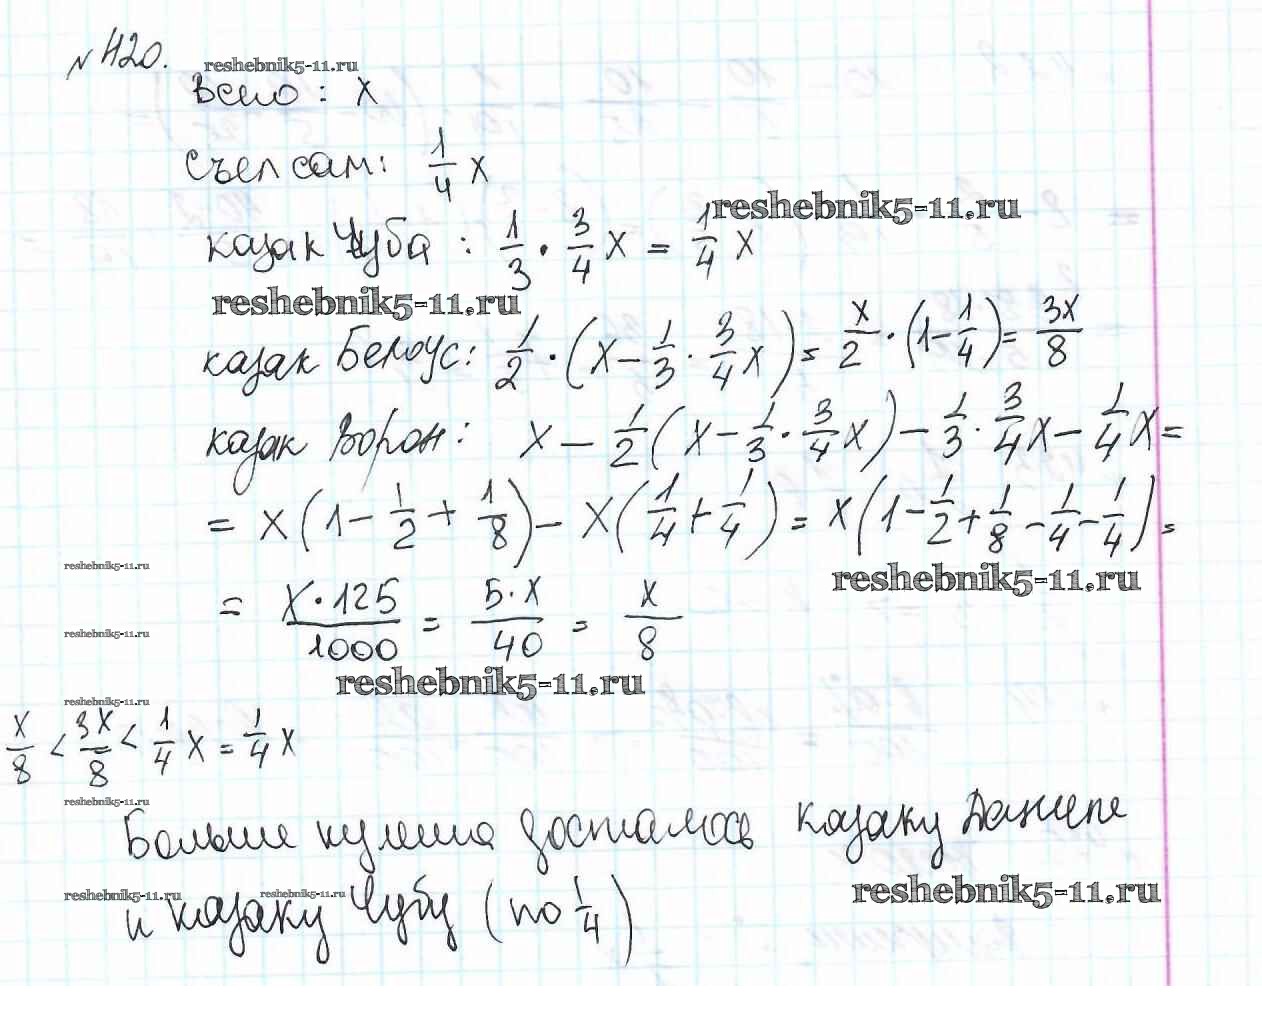 № 420.
reshebnik5-11.ru
Всего : x
Съел сам: 1/4 x
reshebnik5-11.ru
казак Чуба : 1/3 · 3/4 x = 1/4 x
reshebnik5-11.ru
казак Белоус: 1/2 · (x - 1/3 · 3/4 x) = x/2 · (1 - 1/4) = 3x/8
казак Ворон: x - 1/2 (x - 1/3 · 3/4 x) - 1/3 · 3/4 x - 1/4 x =
= x (1 - 1/2 + 1/8) - x (1/4 + 1/4) = x (1 - 1/2 + 1/8 - 1/4 - 1/4) =
reshebnik5-11.ru
reshebnik5-11.ru
= x · 125/1000 = 5 · x/40 = x/8
reshebnik5-11.ru
reshebnik5-11.ru
reshebnik5-11.ru
x/8 < 3x/8 < 1/4 x = 1/4 x
reshebnik5-11.ru
Больше кулеша досталось казаку Даниле
reshebnik5-11.ru
reshebnik5-11.ru
reshebnik5-11.ru
и казаку Чубу (по 1/4)